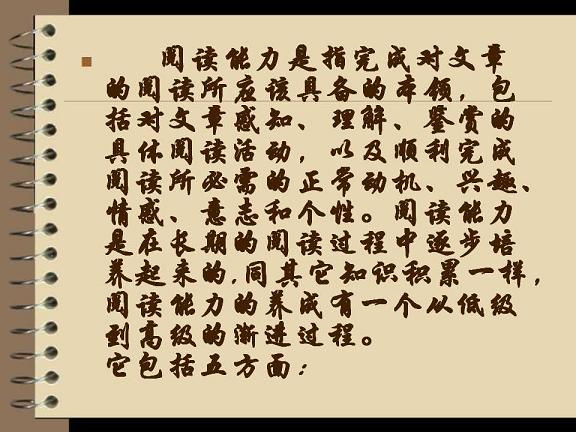 阅读能力是指完成对文章
的阅读所应该具备的本领，包
括对文章感知、理解、鉴赏的
具体阅读活动，以及顺利完成
阅读所必需的正常动机、兴趣、
情感、意志和个性。阅读能力
是在长期的阅读过程中逐步培
养起来的,同其它知识积累一样，
阅读能力的养成有一个从低级
到高级的渐进过程。
它包括五方面：